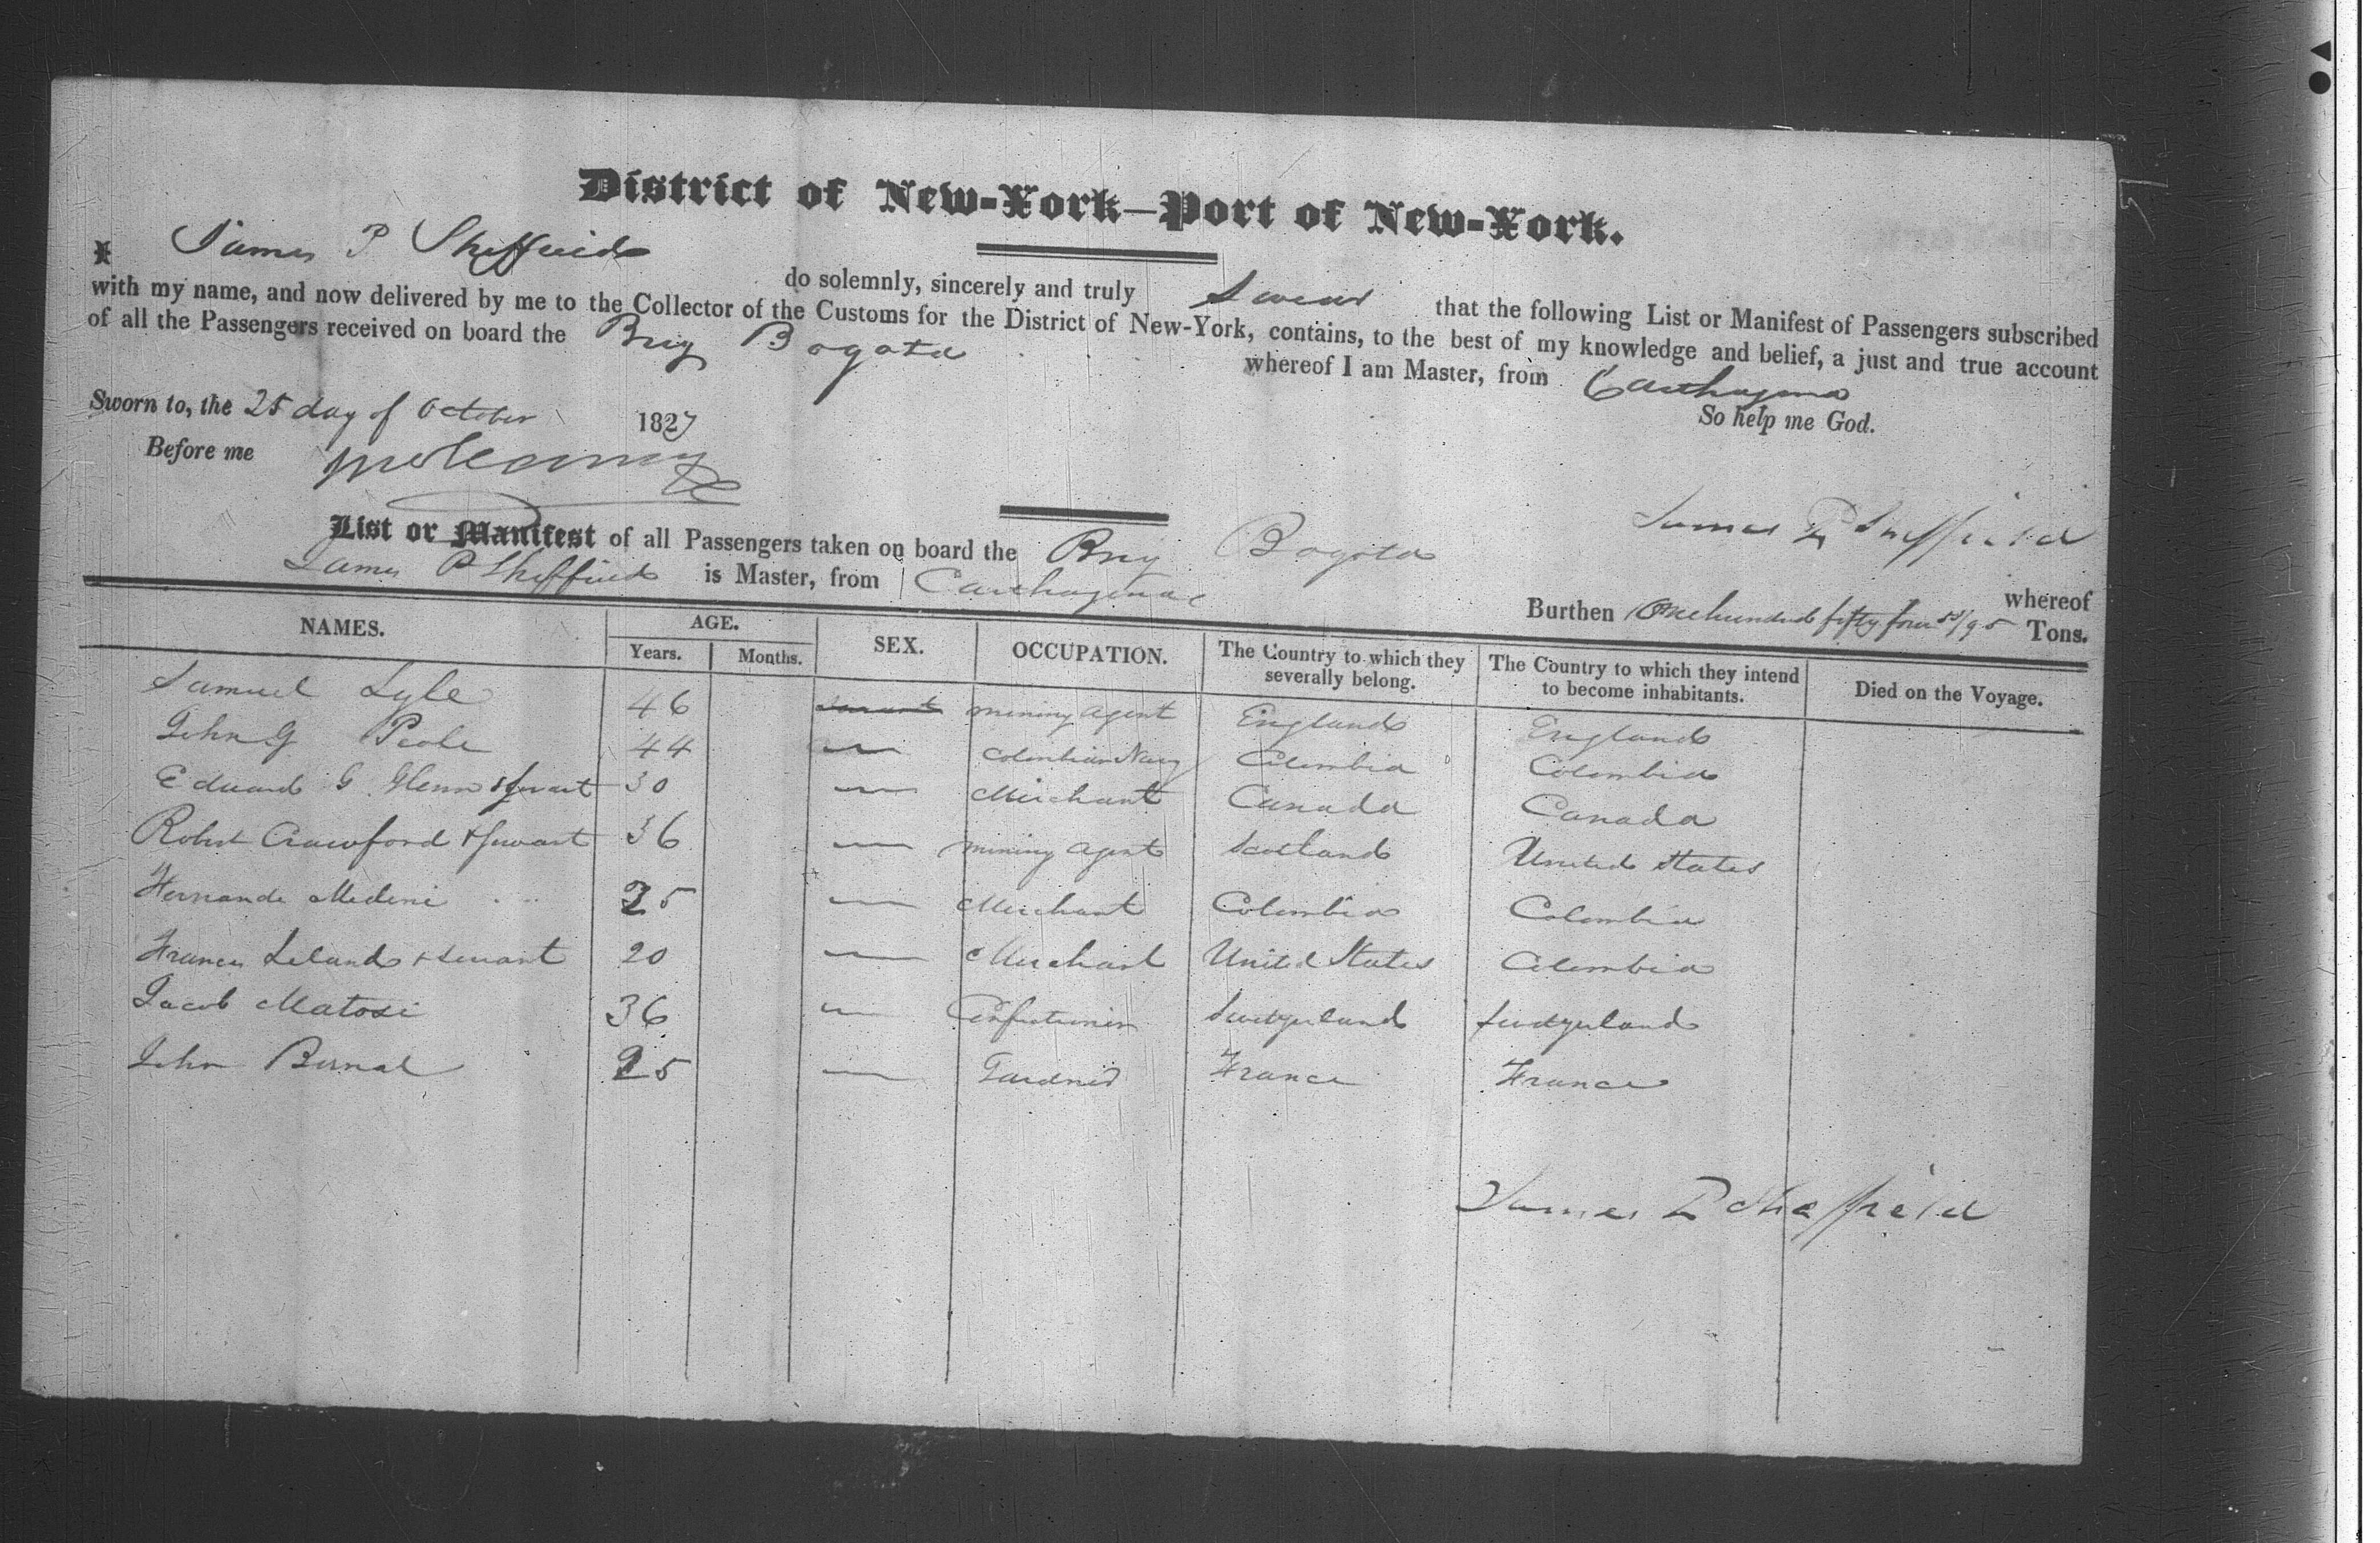 District of New-York—Port of New-York.
I James P Sheffield do solemnly, sincerely and truly Swear that the following List or Manifest of Passengers subscribed
with my name, and now delivered by me to the Collector of the Customs for the District of New-York, contains, to the best of my knowledge and belief, a just and true account
of all the Passengers received on board the Brig Bogota whereof I am Master, from Carthagena
So help me God.
Sworn to, the 25 day of October 1827
Before me
James P Sheffield
List or Manifest of all Passengers taken on board the Brig Bogota whereof
James P Sheffield is Master, from Carthagena Burthen One hundred fifty four /95 Tons.
NAMES. AGE. SEX. OCCUPATION. The Country to which they severally belong. The Country to which they intend to become inhabitants. Died on the Voyage.
Years. Months.
Samuel Lyle 46 mining agent England England
John G Poole 44 — Colombian Navy Colombia Colombia
Edward G Glenn & servant 30 — Merchant Canada Canada
Robert Crawford & servant 36 — mining agent Scotland United States
Hernande Medeni 25 — Merchant Colombia Colombia
Francis Leland & servant 20 — Merchant United States Colombia
Jacob Matossi 36 — Confectioner Switzerland Switzerland
John Bernal 25 — Gardner France France
James P Sheffield